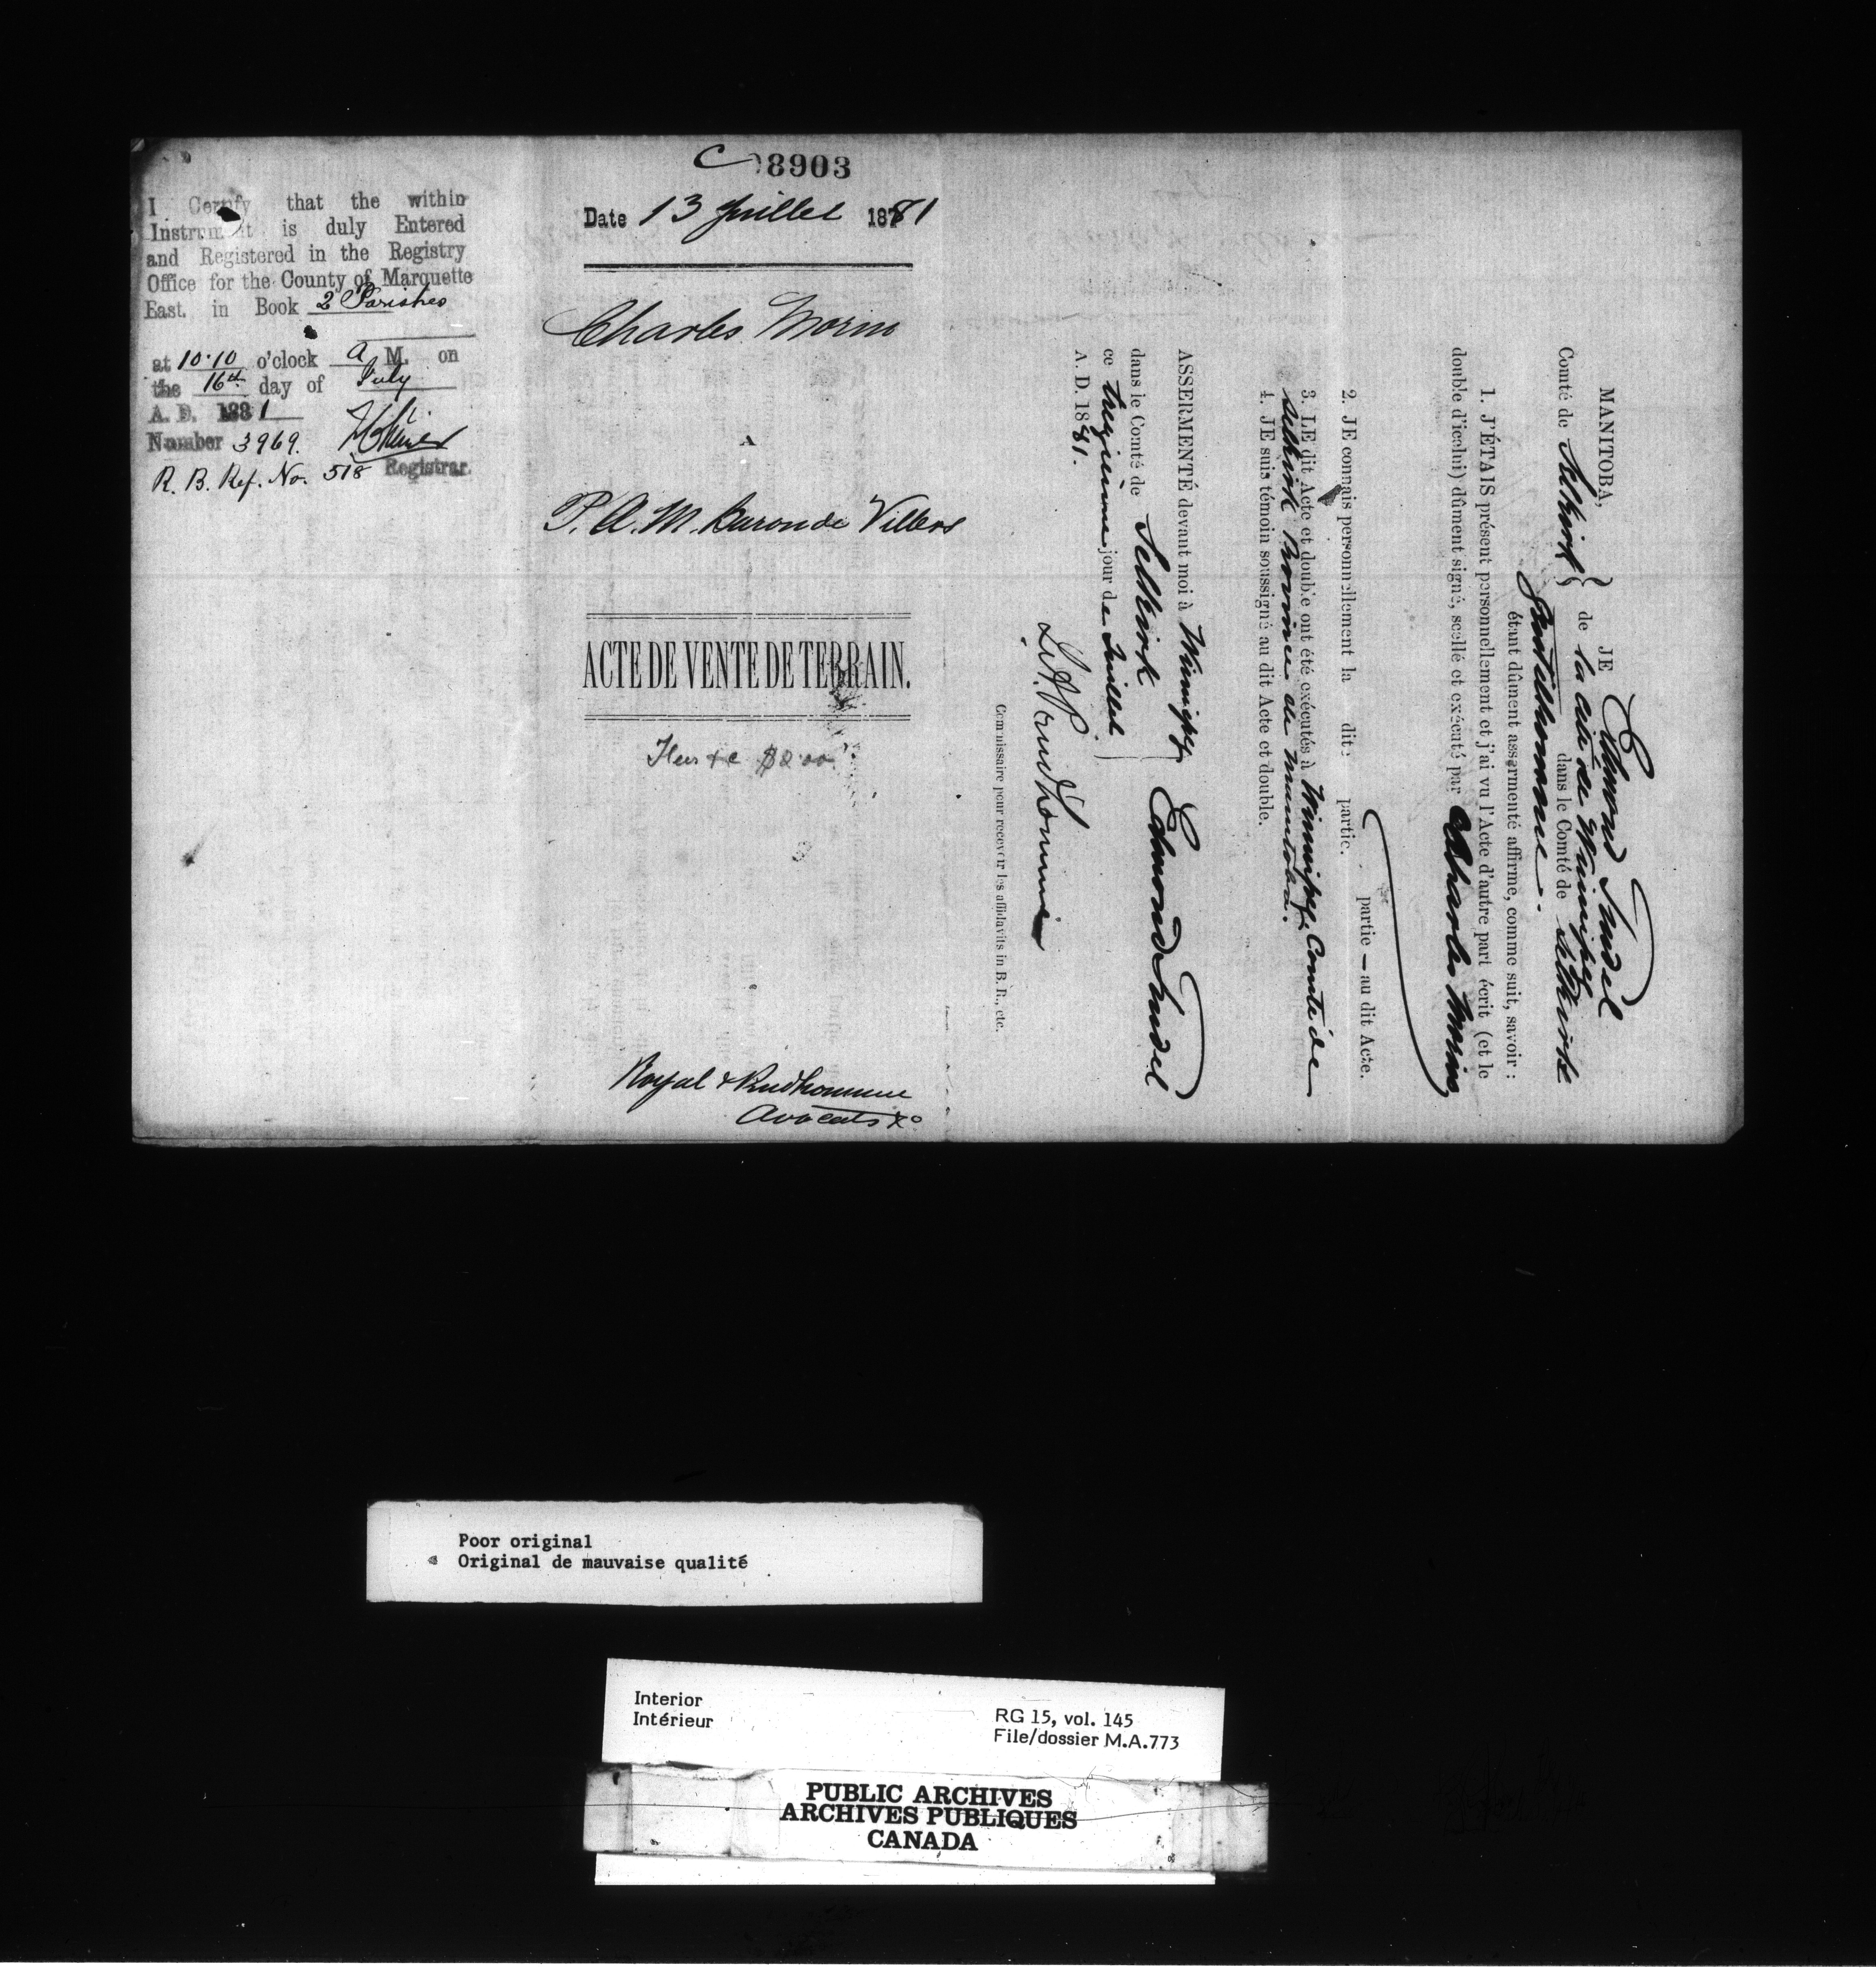 I Certify that the within
Instrument is duly Entered
and Registered in the Registry
Office for the County of Marquette
East. in Book 2 Parishes
at 10.10 o'clock A M. on
the 16th day of July
A. D. 1881
Number 3969.
R. B. Ref. No. 518 Registrar.
C 8903
Date 13 Juillet 1881
Charles Morin
P. A. M. Baron de Villers
ACTE DE VENTE DE TERRAIN.
$2.00
Royal & Prudhomme
Avocats &c
MANITOBA,
Comté de Selkirk
JE Edmond Trudel
de la cité de Winnipeg
dans le Comté de Selkirk
Gentilhomme.
étant dûment assermenté affirme, comme suit, savoir :
1. J'ÉTAIS présent personnellement et j'ai vu l'Acte d'autre part écrit (et le
double d'icelui) dûment signé, scellé et exécuté par Charles Morin
partie — au dit Acte.
2. JE connais personnellement la dite partie.
3. LE dit Acte et double ont été exécutés à Winnipeg, Comté de
Selkirk Province de Manitoba.
4. JE suis témoin soussigné au dit Acte et double.
ASSERMENTÉ devant moi à Winnipeg
dans le Comté de Selkirk
ce treizième jour de Juillet
A. D. 1881.
Edmond Trudel
L. A. Prud'homme
Commissaire pour recevoir les affidavits in B. R., etc.
Poor original
Original de mauvaise qualité
Interior
Intérieur
RG 15, vol. 145
File/dossier M.A.773
PUBLIC ARCHIVES
ARCHIVES PUBLIQUES
CANADA